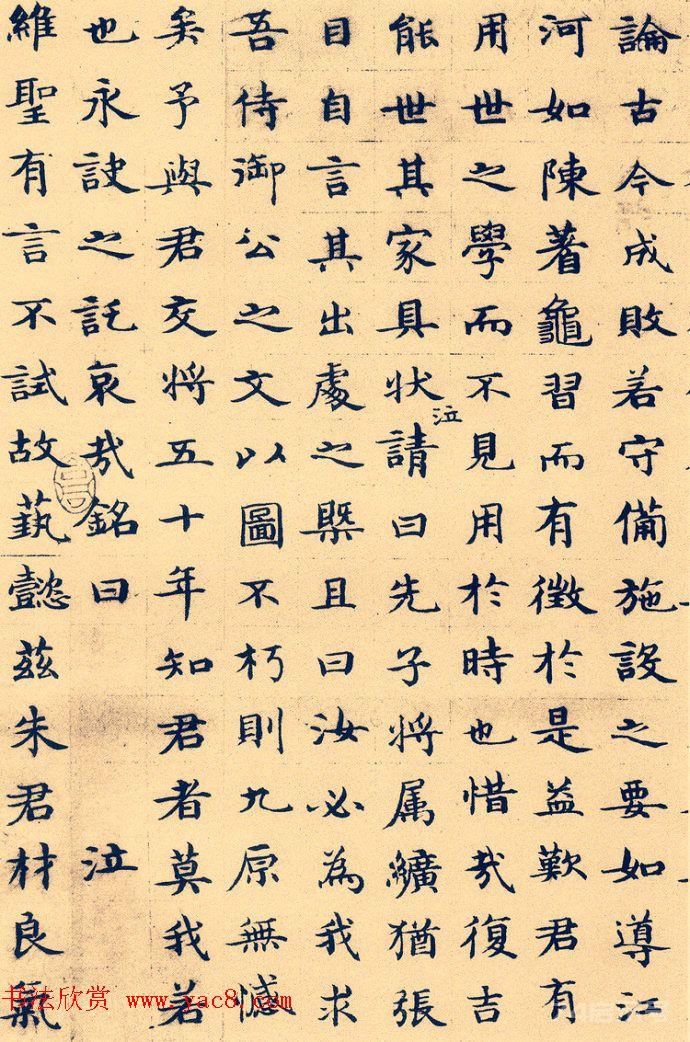 論古今成敗若守備施設之要如導江
河如陳蓍龜習而有徵於是益歎君有
用世之學而不見用於時也惜哉復吉
能世其家具狀泣請曰先子將属纊猶張
目自言其出處之槩且曰汝必為我求
吾侍御公之文以圖不朽則九原無憾
矣予與君交將五十年知君者莫我若
也永訣之託哀哉銘曰 泣
維聖有言不試故藝懿茲朱君材良氣
书法欣赏 www.yac8.com